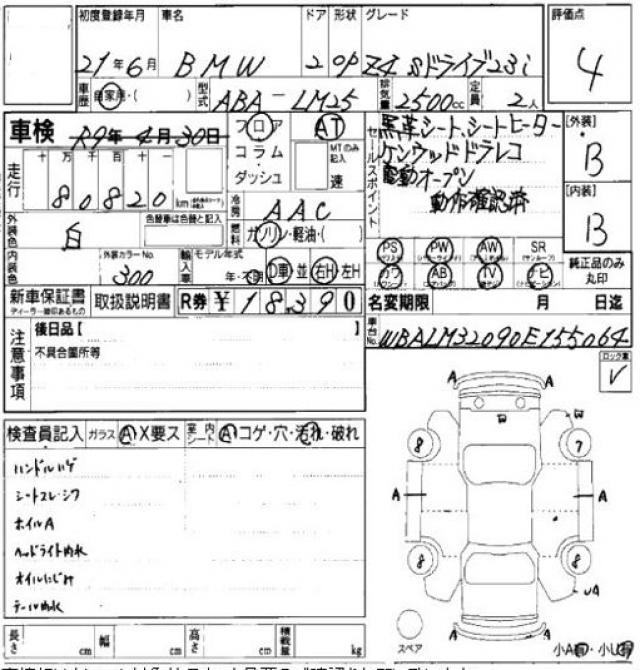 初度登録年月 車名 ドア 形状 グレード 評価点
21年6月 BMW 2 OP Z4 Sドライブ23i 4
車歴 自家用・( ) 型式 ABA-LM25 排気量 2500cc 定員 2人
車検 R9年4月30日 フロア AT セールスポイント 馬革シート、シートヒーター [外装]
コラム MTのみ記入 ケンウッドドラレコ B
走行 十万千百十一 ダッシュ 速 電動オープン
80820 km 動作確認済 [内装]
冷房 AAC B
外装色 白 色替車は色替と記入 燃料 ガソリン・軽油・( )
内装色 外装カラーNo. 300 輸入車 モデル年式 年・不明 D車 並 右H 左H
PS PW AW SR (サンルーフ) 純正品のみ丸印
カワ AB TV ナビ
新車保証書 取扱説明書 R券 ¥18,390 名変期限 月 日迄
ディーラー捺印あるもの
注意事項 後日品【 】 車台No. WBALM32090E155064
不具合箇所等
検査員記入 ガラス A X要ス 室内シート A コゲ・穴・汚れ・破れ
ハンドルハゲ
シートスレ・シワ
ホイルA
ヘッドライト内水
オイルにじみ
テール内水
長さ cm 幅 cm 高さ cm 積載量 kg
ロック車 レ
A A
W W
8 7
A A
8 8
A A
スペア 小A有・小U有